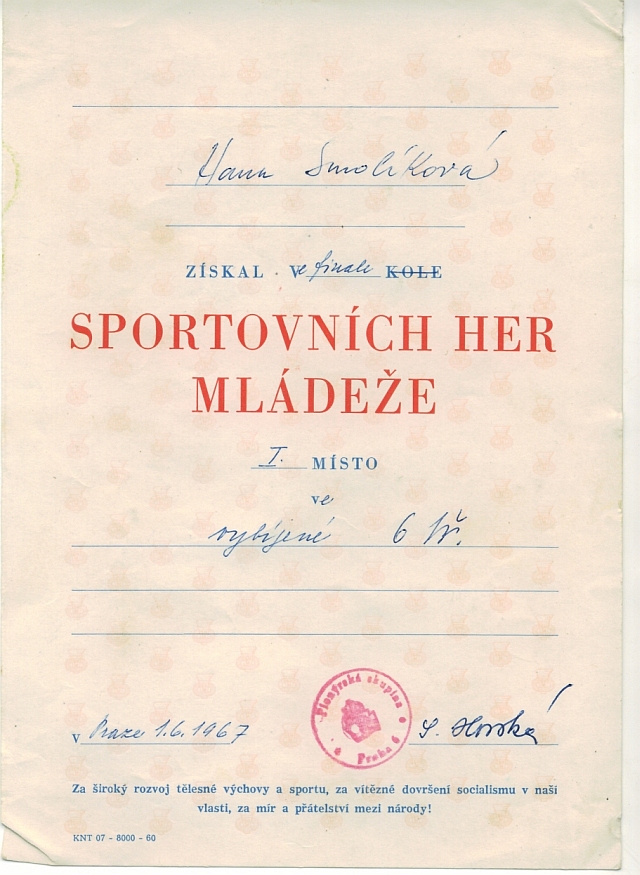 Hana Smolíková
ZÍSKAL · Ve finale KOLE
SPORTOVNÍCH HER
MLÁDEŽE
I. MÍSTO
ve
vybíjené 6 tř.
v Praze 1.6.1967
Pionýrská skupina
Praha 6
S. Horská
Za široký rozvoj tělesné výchovy a sportu, za vítězné dovršení socialismu v naší
vlasti, za mír a přátelství mezi národy!
KNT 07 - 8000 - 60